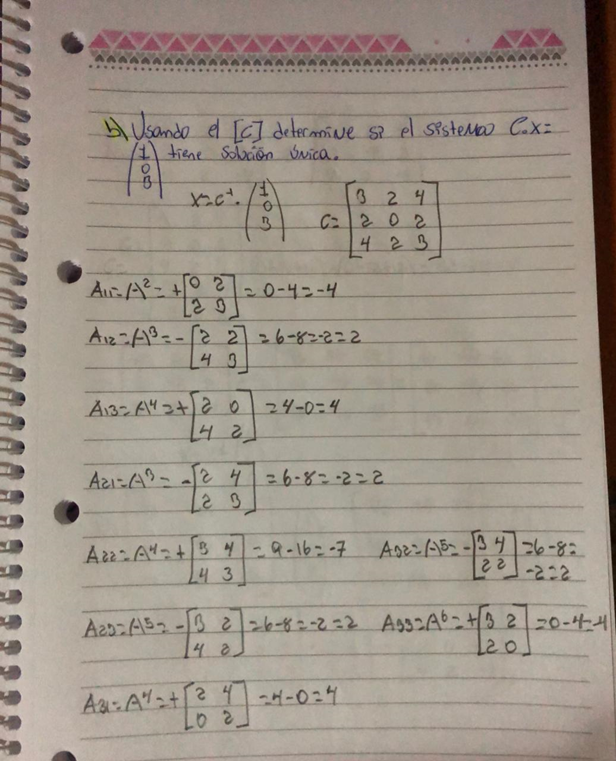 b) Usando el [C] determine si el sistema C.x=
(1 0 3) tiene solución única.
x=c⁻¹.(1 0 3) C=[3 2 4
2 0 2
4 2 3]
A11=(-)²=+[0 2
2 3]=0-4=-4
A12=(-)³=-[2 2
4 3]=6-8=-2=2
A13=(-)⁴=+[2 0
4 2]=4-0=4
A21=(-)³=-[2 4
2 3]=6-8=-2=2
A22=(-)⁴=+[3 4
4 3]=9-16=-7
A32=(-)⁵=-[3 4
2 2]=6-8=
-2=2
A23=(-)⁵=-[3 2
4 2]=6-8=-2=2
A33=(-)⁶=+[3 2
2 0]=0-4=-4
A31=(-)⁴=+[2 4
0 2]=4-0=4